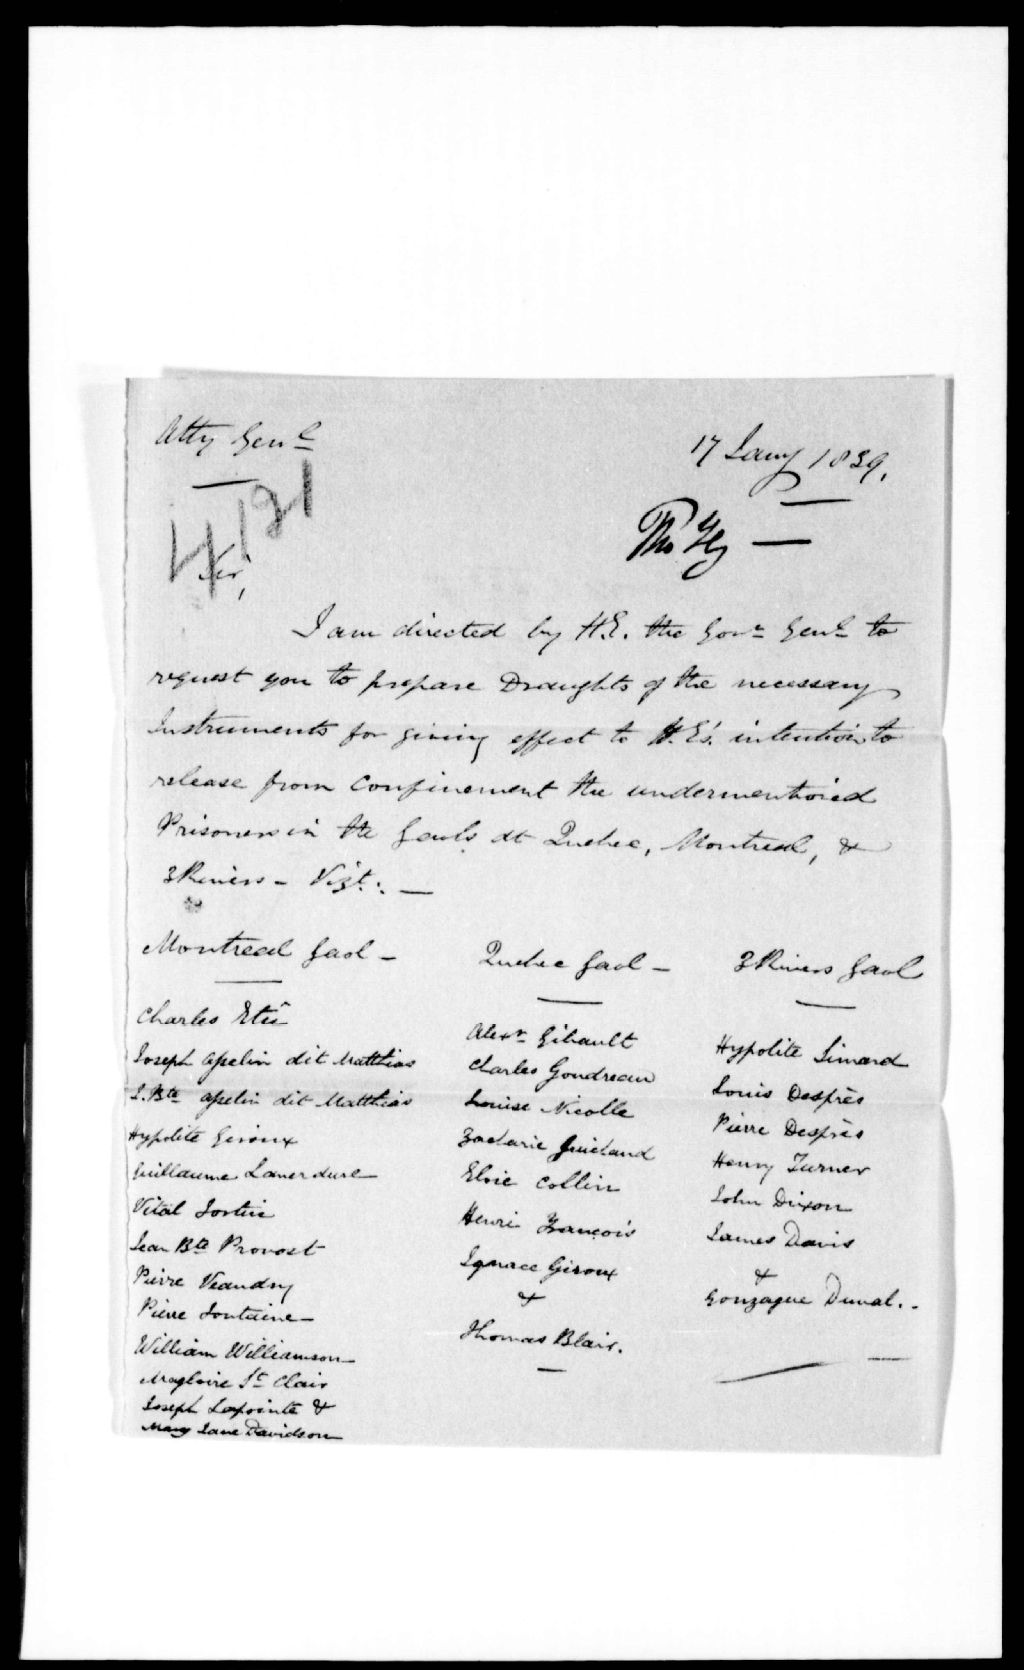 Atty Genl
17 Jany 1839.
4121
Sir,
I am directed by H.E. the Govr Genl to
request you to prepare Draughts of the necessary
Instruments for giving effect to H.E's. intention to
release from confinement the undermentioned
Prisoners in the Gaols at Quebec, Montreal, &
3 Rivers - Vizt: —
Montreal Gaol -
Charles
Joseph Asselin dit Matthias
J. Bte Asselin dit Matthias
Hypolite Giroux
Guillaume Laverdure
Vital Fortin
Jean Bte Provost
Pierre Veaudry
Pierre Fontaine
William Williamson
Magloire St Clair
Joseph Lapointe &
Mary Jane Davidson
Quebec Gaol -
Alexr Gibault
Charles Goudreau
Louise Nicolle
Zacharie
Eloie Collin
Henri François
Ignace Giroux
&
Thomas Blair.
3 Rivers Gaol
Hypolite Simard
Louis Desprès
Pierre Desprès
Henry Turner
John Dixon
James Davis
&
Gonzague Duval. -